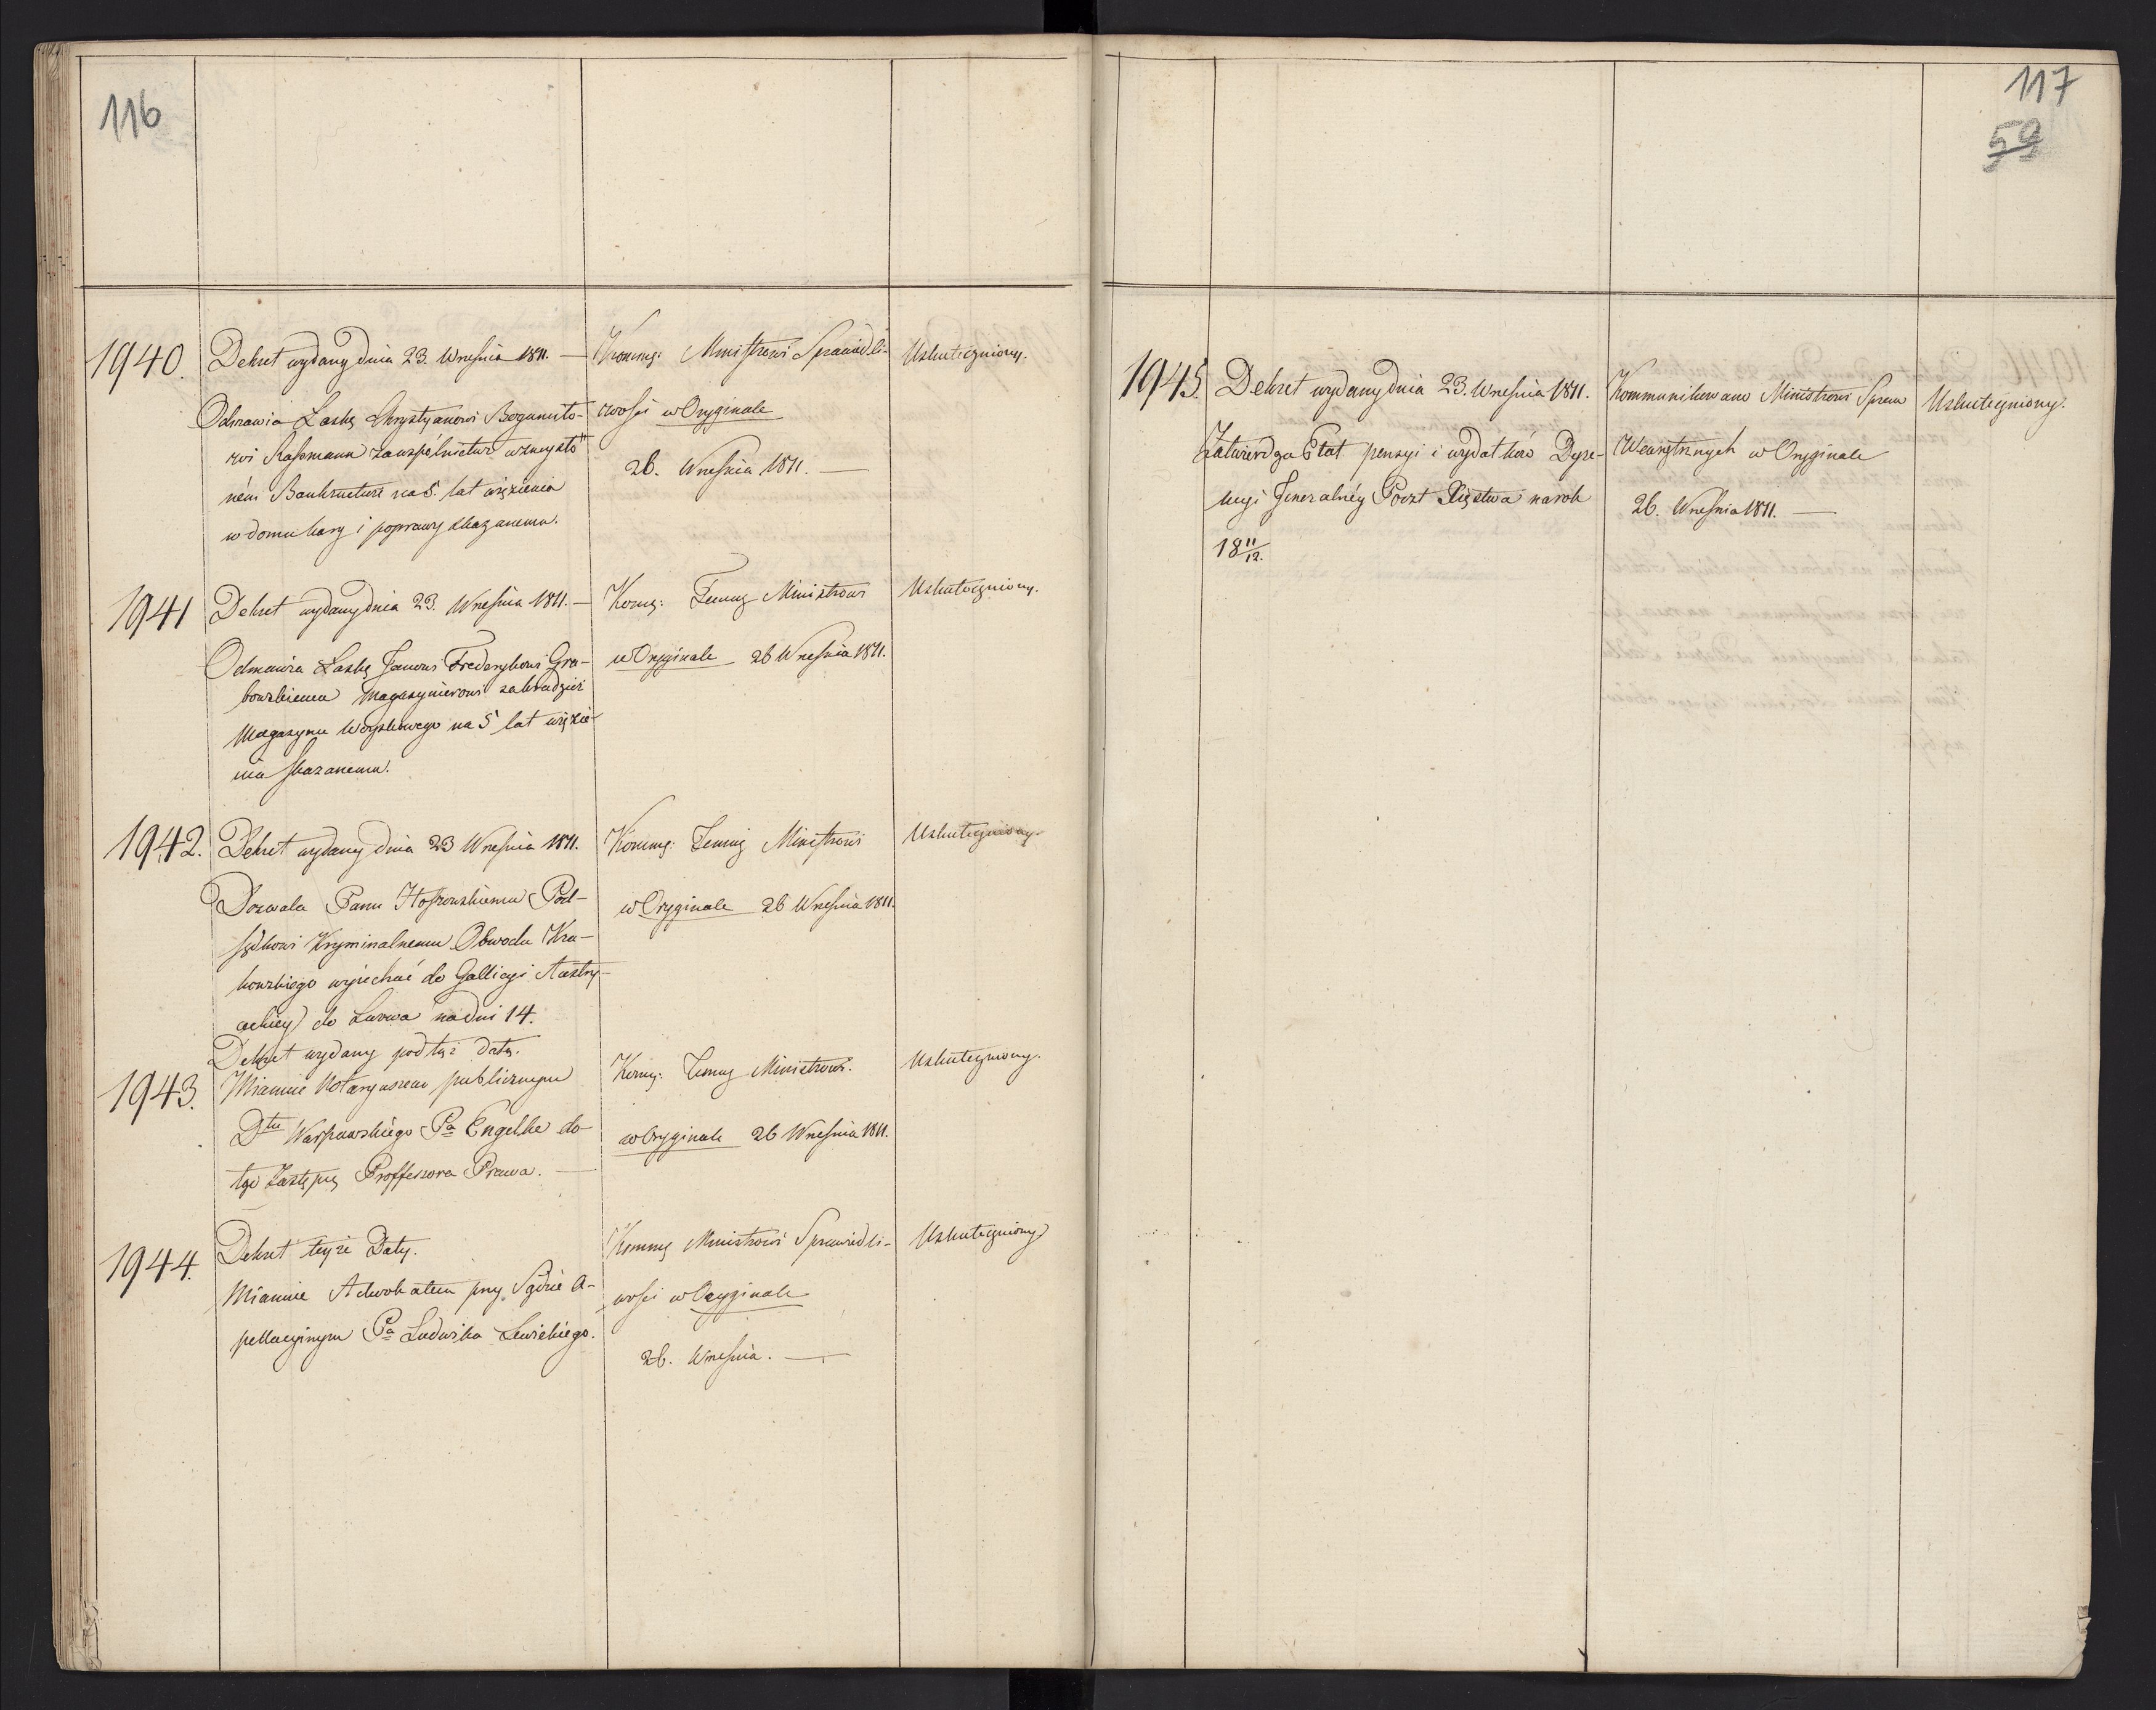 116
1940.
Dekret wydany dnia 23. Wrześnie 1811. —
Odmawia Laskę Chrystyanowi Bogumiło-
wi Rassmann za wspólnictwo w umyśl-
ném Bankructwie na 5. lat więzienia
w domu kary i poprawy skazanemu.
Kommg: Ministrowi Sprawiedli-
wości w Oryginale
26. Września 1811. —
Uskuteczniony.
1941
Dekret wydany dnia 23. Września 1811. —
Odmawia Laskę Janowi Frederykowi Gra-
bowskiemu Magazynierowi za kradzież
Magazynu Woyskowego na 5 lat więzie-
nia skazanemu.
Komg: Temuż Ministrowi
w Oryginale 26 Września 1811.
Uskuteczniony.
1942.
Dekret wydany dnia 23 Września 1811.
Dozwala Panu Hoszowskiemu Pod-
sędkowi Kryminalnemu Obwodu Kra-
kowskiego wyjechać do Gallicyi Austry-
ackiey do Lwowa na dni 14.
Kommg: Temuż Ministrowi
w Oryginale 26 Września 1811.
Uskuteczniony.
1943.
Dekret wydany pod tąż datą.
Mianuie Notaryuszem publicznym
Dtu Warszawskiego Pa Engelke do-
tąd Zastępcę Proffessora Prawa. —
Komg: Temuż Ministrowi.
w Oryginale 26 Września 1811.
Uskuteczniony.
1944.
Dekret teyże Daty.
Mianuie Adwokatem przy Sądzie A-
pellacyinym Pa Ludwika Lewickiego.
Kommg Ministrowi Sprawiedli-
wości w Oryginale
26. Września. —
Uskuteczniony
117
59
1945.
Dekret wydany dnia 23. Września 1811.
Zatwierdza Etat pensyi i wydatków Dyre-
kcyi Jeneralnéy Poczt Xięstwa na rok
18 11/12.
Kommunikowano Ministrowi Spraw
Wewnętrznych w Oryginale
26. Września 1811. —
Uskuteczniony.